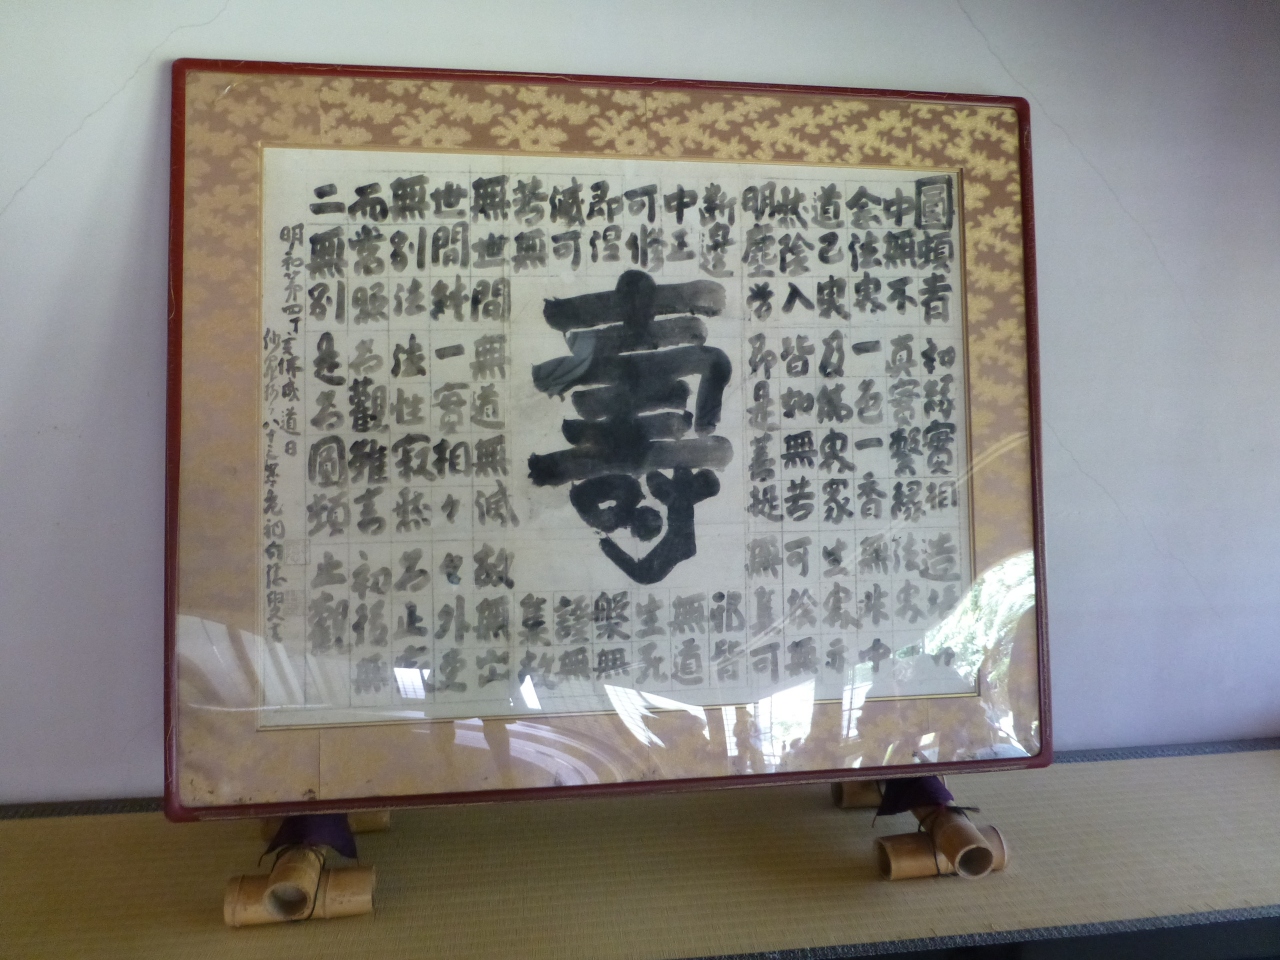 圓頓者初縁實相造境即
中無不真實繫縁法界一
念法界一色一香無非中
道己界及佛界衆生界亦
然陰入皆如無苦可捨無
明塵労即是菩提無集可
断邊邪皆
中正無道
可修生死
即涅槃無
滅可證無
苦無集故
壽
無世間無道無滅故無出
世間純一實相々々外更
無別法法性寂然名止寂
而常照名觀雖言初後無
二無別是名圓頓止觀
明和第四丁亥佛成道日
八十三